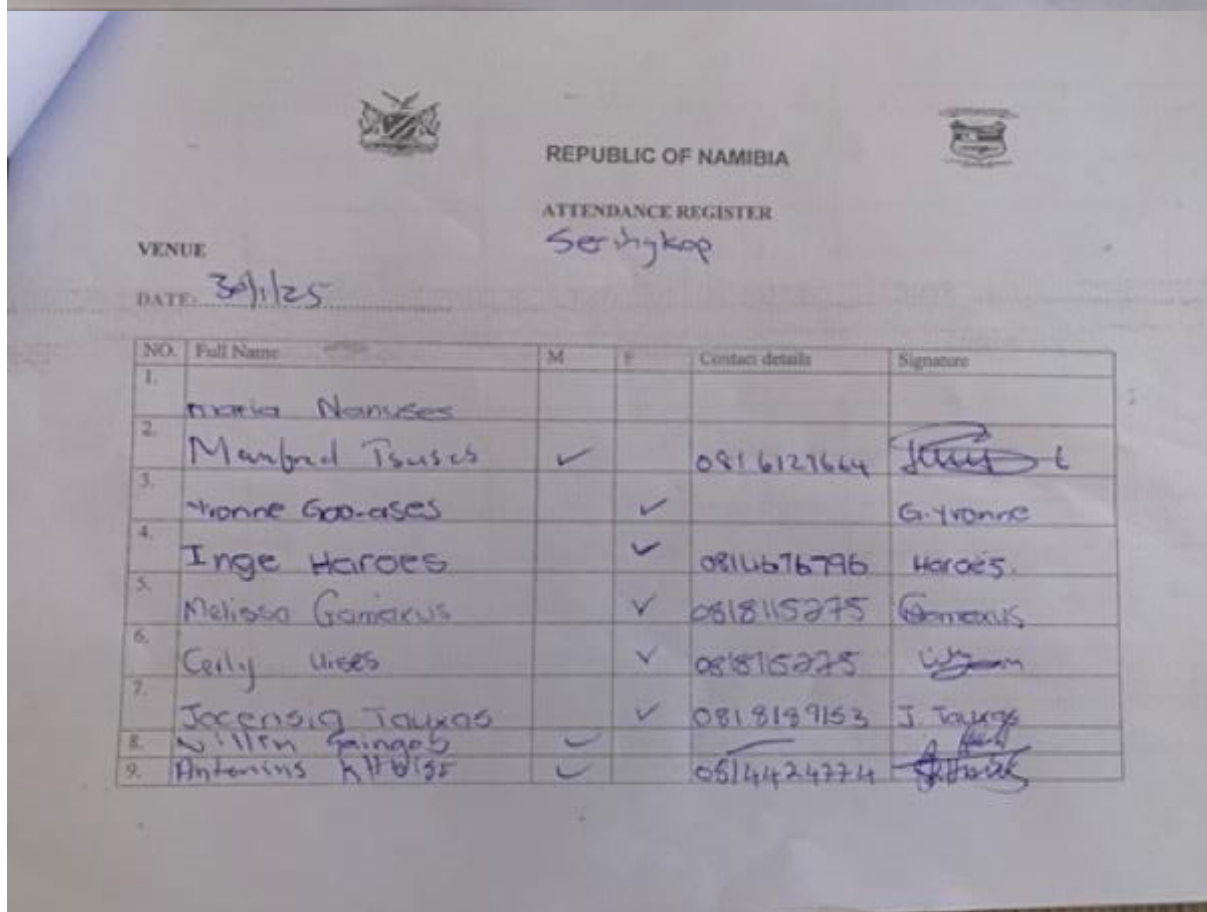 REPUBLIC OF NAMIBIA
ATTENDANCE REGISTER
VENUE Seringkop
DATE: 30/1/25
NO. Full Name M F Contact details Signature
1. Maria Nanuses
2. Manfred Tsuses ✓ 0816127664
3. Yvonne Goo-ases ✓ G.Yvonne
4. Inge Haroes ✓ 0814676796 Haroes.
5. Melissa Gamaxus ✓ 0818115275 Gamaxus
6. Cerly Uises ✓ 0818115275
7. Jacensia Tauxas ✓ 0818189153 J. Tauxas
8. Willem Gaingob ✓ —
9. Antonins ✓ 0814424774